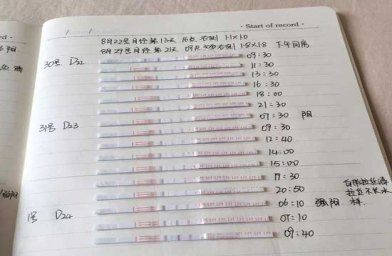 Start of record
8月22号月经第13天 16点 右侧 1.1×1.0
8月29号月经第21天 右侧 1.8×1.8 下午同房
30号 D22 09:30
11:30
13:30
16:30
18:00
21:30
31号 D23 07:30 阳
09:30
12:40
14:00
15:00
17:30
20:50
06:10 强阳
1号 D24 07:10
09:40